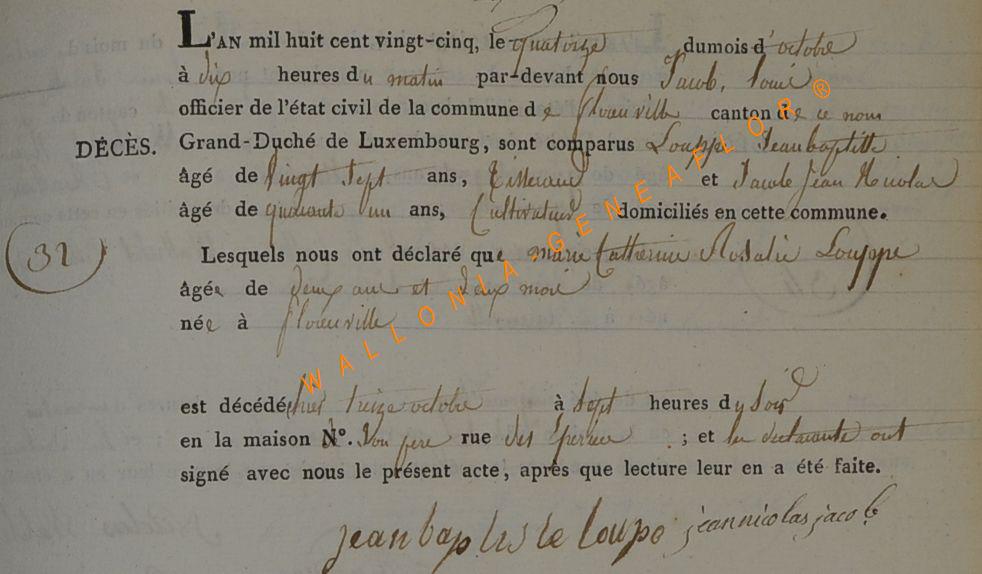 L'AN mil huit cent vingt-cinq, le quatorze du mois d'octobre
à dix heures du matin par-devant nous Jacob, Louis
officier de l'état civil de la commune de florenville canton de ce nom
DÉCÈS. Grand-Duché de Luxembourg, sont comparus Louppe Jean baptiste
âgé de vingt sept ans, Tisserand et Jacob Jean Nicolas
âgé de quarante un ans, Cultivateur domiciliés en cette commune.
32 Lesquels nous ont déclaré que marie Catherine Rosalie Louppe
âgée de deux ans et deux mois
née à florenville
est décédée hier treize octobre à sept heures du soir
en la maison N°. Son père rue des ; et les déclarants ont
signé avec nous le présent acte, après que lecture leur en a été faite.
jean baptiste loupe jean nicolas jacob
WALLONIA GENEAFLOR ®